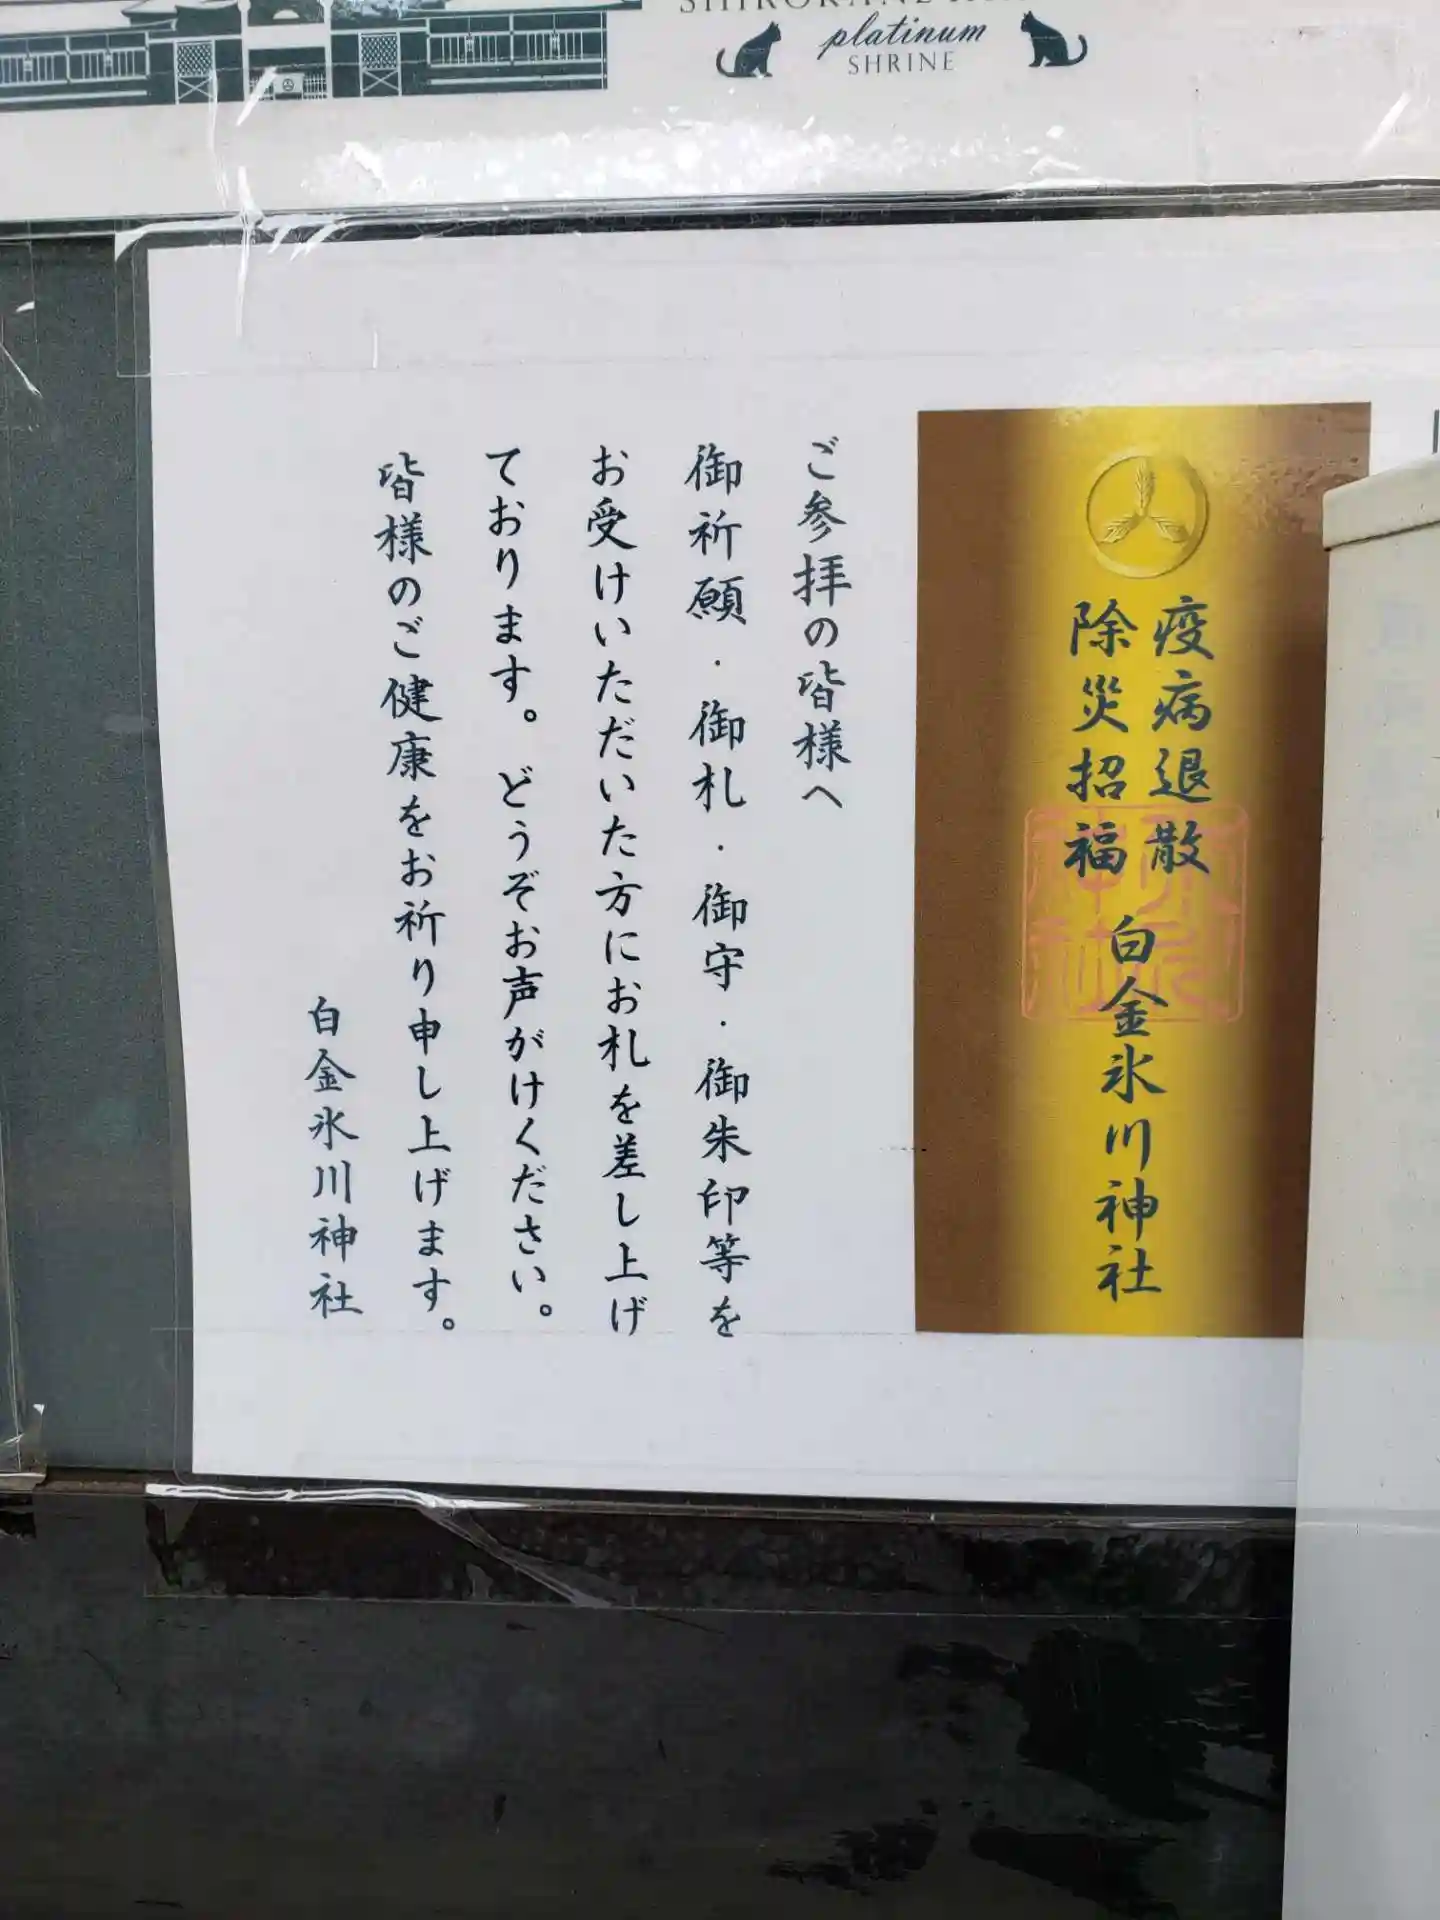 SHIROKANE
platinum
SHRINE
疫病退散
除災招福
白金氷川神社
ご参拝の皆様へ
御祈願・御札・御守・御朱印等を
お受けいただいた方にお札を差し上げ
ております。どうぞお声がけください。
皆様のご健康をお祈り申し上げます。
白金氷川神社